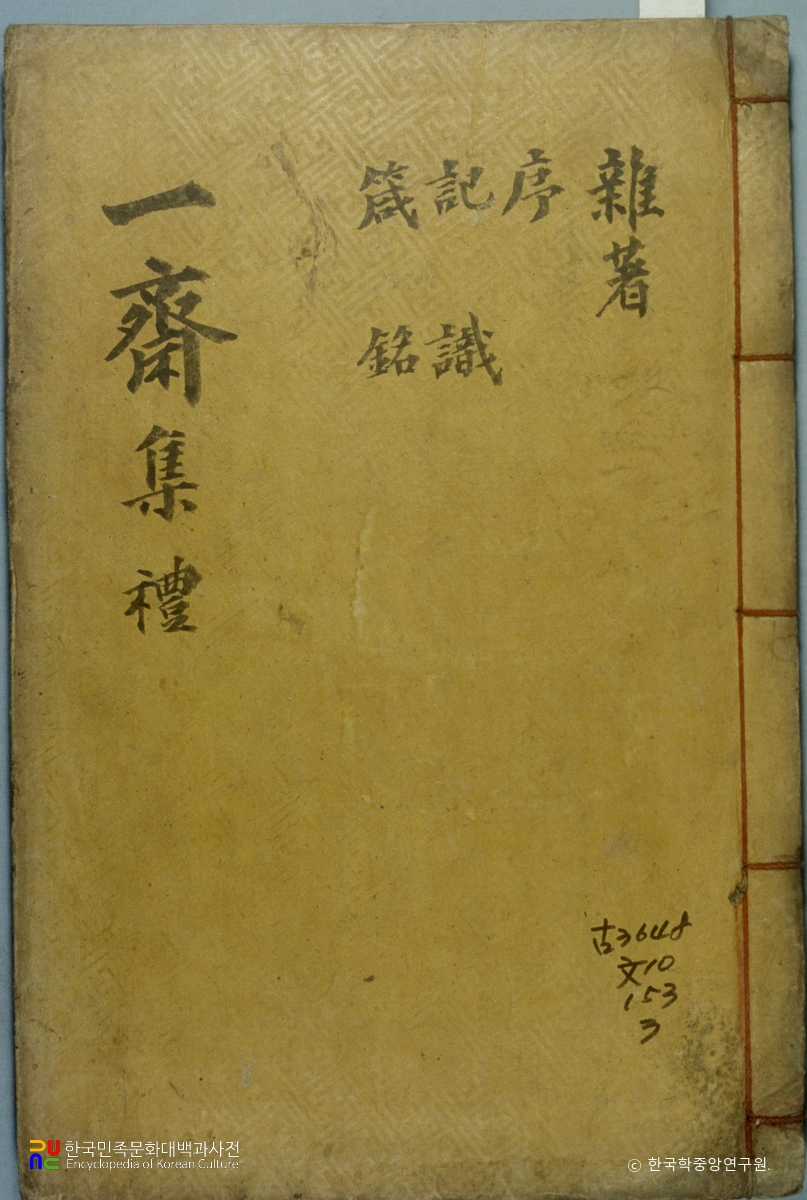 雜著
序
記 識
箴 銘
一齋集 禮
古3648
文10
153
3
한국민족문화대백과사전
Encyclopedia of Korean Culture
© 한국학중앙연구원.